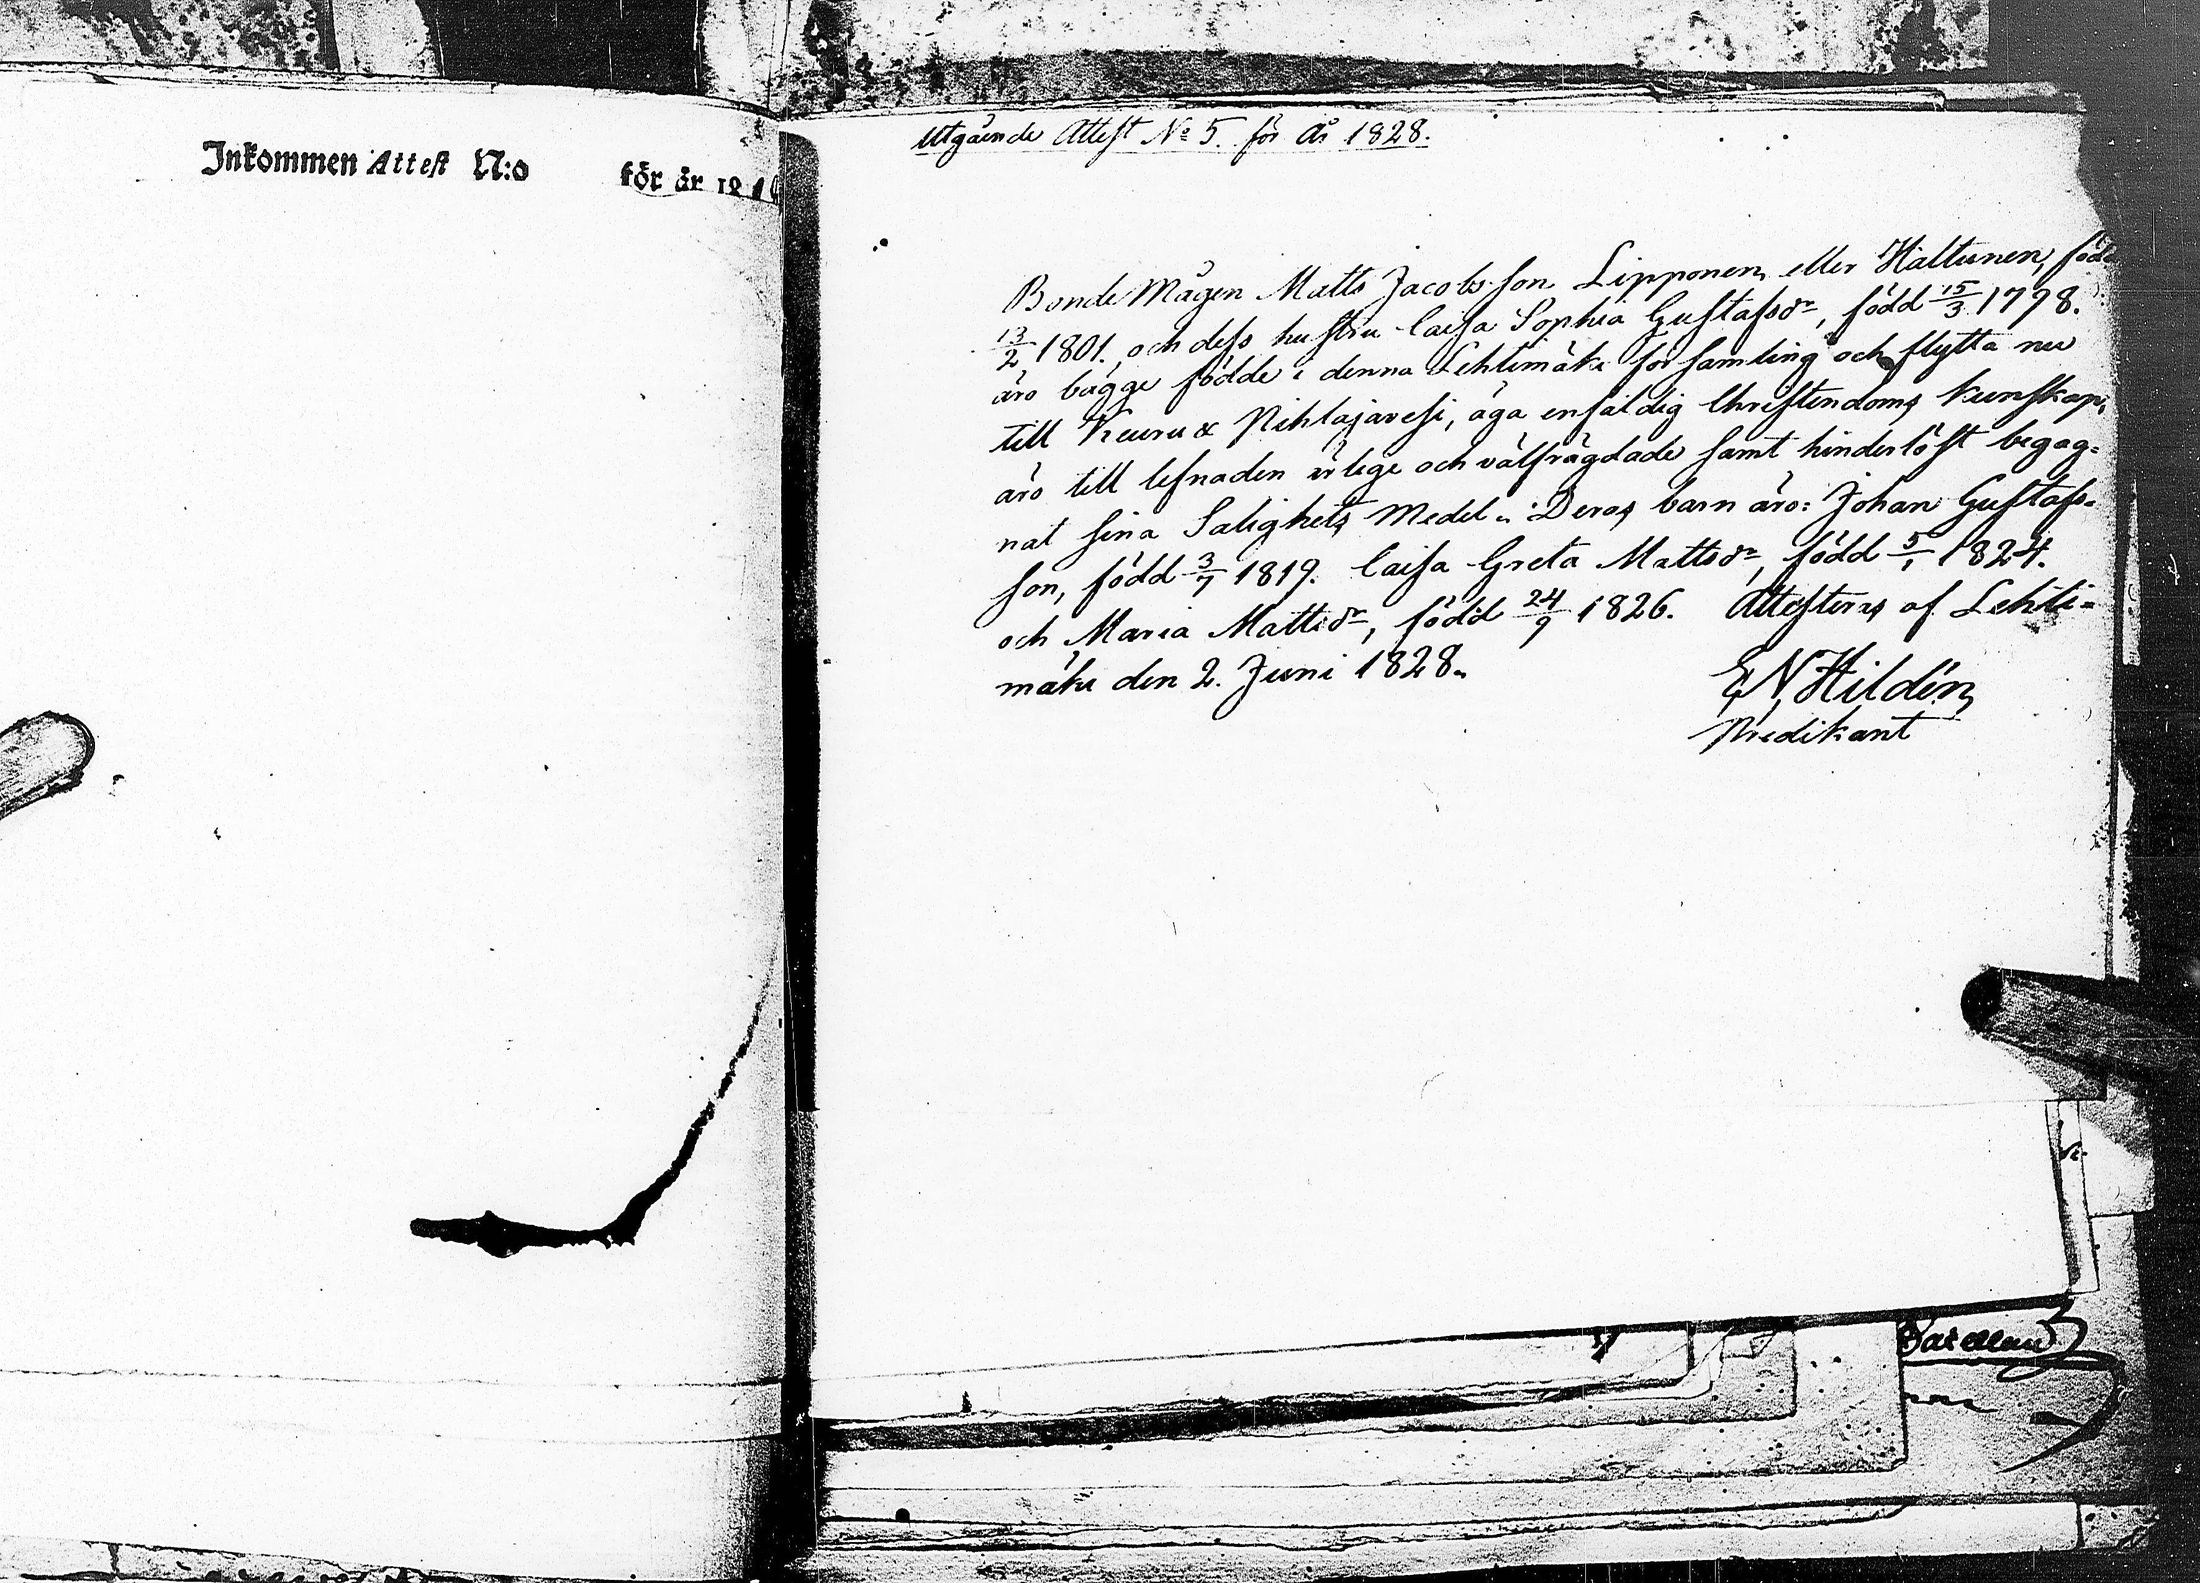 Inkommen Attest N:o för år 18
Utgående Attest No 5. för År 1828.
Bonde Mågen Matts Jacobsson Lipponen eller Hältunen, född
13/2 1801. och dess hustru Caisa Sophia Gustafsdr, född 15/3 1798.
äro bägge födde i denna Lehtimäki församling och flytta nu
till Keuru & Pihlajavesi, äga enfäldig Christendoms kunskap,
äro till lefnaden ärlige och välfrägdade samt hinderlöst begag=
nat sina Salighets Medel. Deras barn äro: Johan Gustafs-
son, född 3/7 1819. Caisa Greta Mattsdr, född 5/1 1824.
och Maria Mattsdr, född 24/9 1826. Attesteras af Lehti=
mäki den 2. Juni 1828.
E, N, Hildén,
Predikant